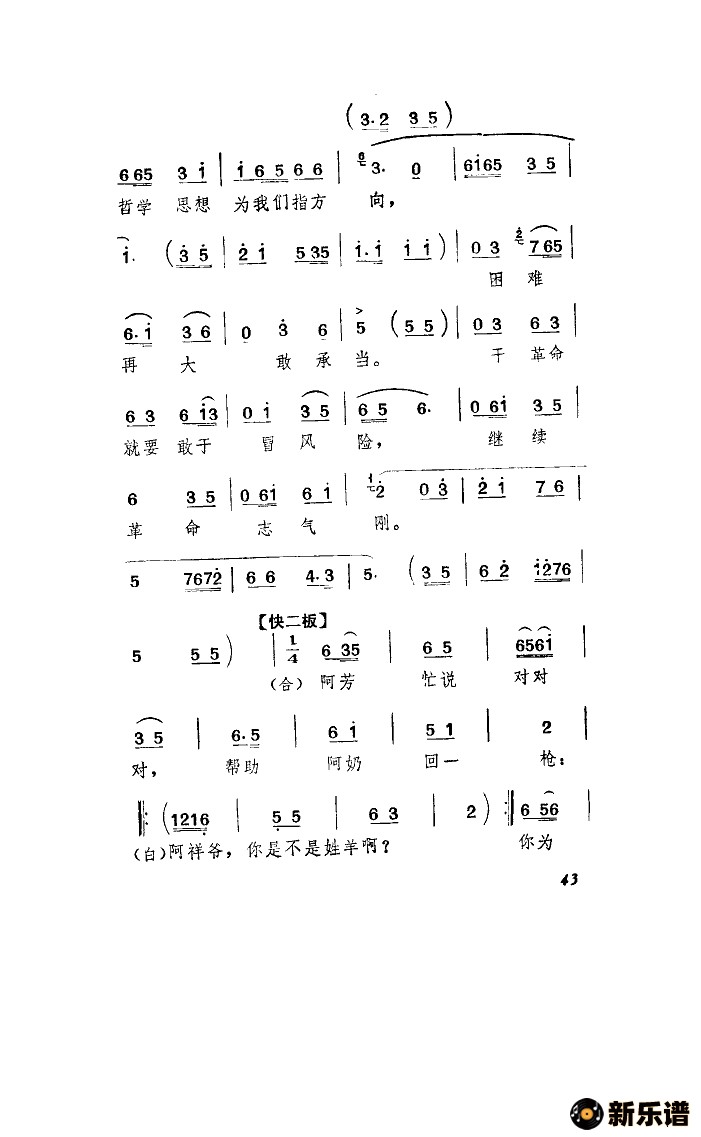 (3·2 3 5)
6 6 5 3 i | i 6 5 6 6 | 3· 0 | 6i65 3 5 |
哲学 思想 为我们指方 向，
i· (3 5 | 2 i 5 35 | i·i i i) | 0 3 765 |
困 难
6·i 3 6 | 0 3 6 | 5 (5 5) | 0 3 6 3 |
再 大 敢 承 当。 干 革命
6 3 6 i3 | 0 i 3 5 | 6 5 6· | 0 6i 3 5 |
就要 敢于 冒 风 险， 继 续
6 3 5 | 0 6i 6 i | 2 0 3 | 2 i 7 6 |
革 命 志 气 刚。
5 7672 | 6 6 4·3 | 5· (3 5 | 6 2 i276 |
【快二板】
5 5 5) | 1/4 6 35 | 6 5 | 656i |
(合) 阿芳 忙说 对对
3 5 | 6·5 | 6 i | 5 1 | 2 |
对， 帮助 阿奶 回一 枪：
‖: (1216 | 5 5 | 6 3 | 2) :‖ 6 56 |
(白)阿祥爷，你是不是姓羊啊？ 你为
43
新乐谱